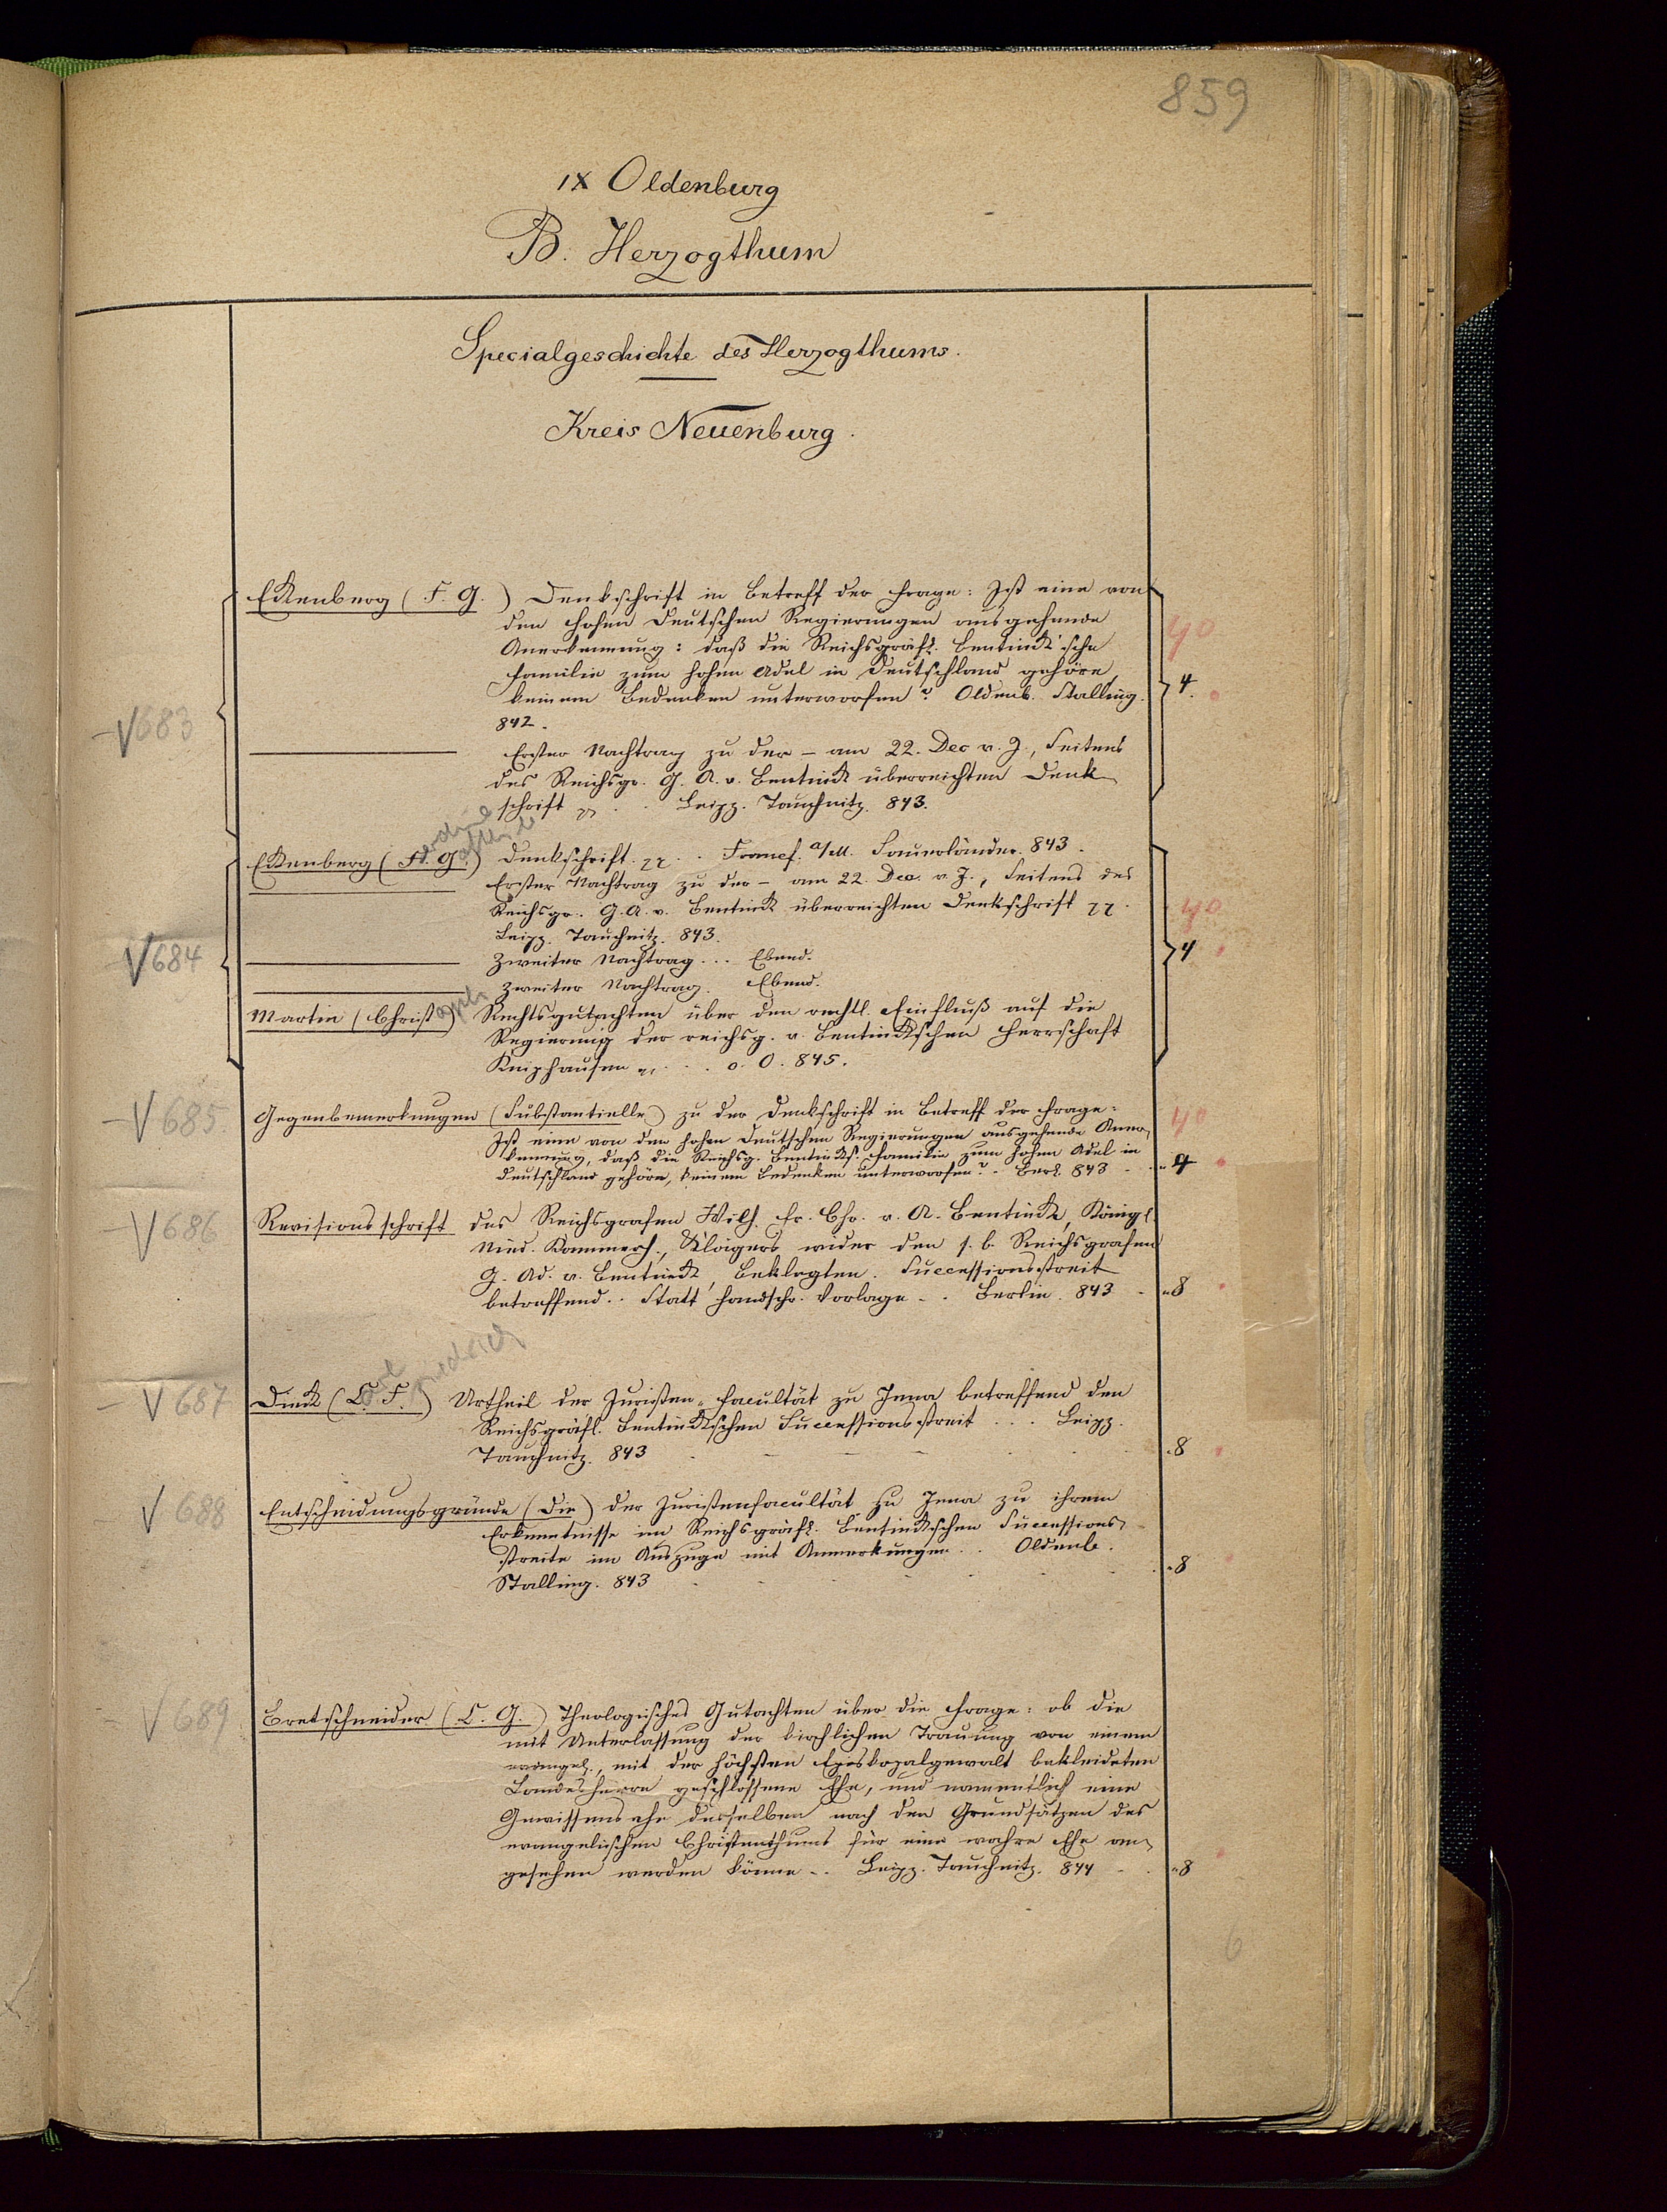 859
IX Oldenburg
B. Herzogthum
Specialgeschichte des Herzogthums.
Kreis Neuenburg.
V 683
Ekenberg (F. G.) Denkschrift in Betreff der Frage: Ist eine von
den hohen Deutschen Regierungen ausgehende
Anerkennung: daß die Reichsgräfl. Bentinck'sche
Familie zum hohen Adel in Deutschland gehöre,
keinem Bedenken unterworfen? Oldenb. Stalling.
842.
40
4.
Erster Nachtrag zu der – am 22. Dec v. J., Seitens
des Reichsgr. G. A. v. Bentinck überreichten Denk
schrift Leipz. Tauchnitz. 843.
V 684
Ekenberg (F. G.) Denkschrift. Francf. a/M. Sauerländer. 843.
Erster Nachtrag zu der – am 22. Dec. v. J., Seitens des
Reichsgr. G. A. v. Bentinck überreichten Denkschrift
Leipz. Tauchnitz. 843.
40
Zweiter Nachtrag... Ebend.
4
Zweiter Nachtrag. Ebend.
Martin (Christoph) Rechtsgutachten über den rechtl. Einfluß auf die
Regierung der reichsg. v. Bentinckschen Herrschaft
Kniphausen o. O. 845.
V 685.
Gegenbemerkungen (Substantielle) zu der Denkschrift in Betreff der Frage:
Ist eine von den hohen Deutschen Regierungen ausgehende Aner
kennung, daß die Reichsg. Bentincks. Familie zum hohen Adel in
Deutschland gehöre, keinem Bedenken unterworfen? Berl. 843
40
4
V 686
Revisionsschrift des Reichsgrafen Wilh. Fr. Chr. v. A. Bentinck, Königl.
Nied. Kammerh., Klägers wider den s. b. Reichsgrafen
G. Ad. v. Bentinck, Beklagten. Successionsstreit
betreffend.. Statt handschr. Vorlage .. Berlin. 843
8
Carl Friedrich
V 687
Dieck (C. F.) Urtheil der Juristen-Facultät zu Jena betreffend den
Reichsgräfl. Bentinckschen Successionsstreit ... Leipz.
Tauchnitz. 843
8
V 688
Entscheidungsgründe (Die) der Juristenfacultät zu Jena zu ihrem
Erkenntnisse im Reichsgräfl. Bentinckschen Successions
streite im Auszuge mit Anmerkungen .. Oldenb.
Stalling. 843
8
V 689
Bretschneider (C. G.) Theologisches Gutachten über die Frage: ob die
mit Unterlassung der kirchlichen Trauung von einem
evangel., mit der höchsten Episkopalgewalt bekleideten
Landesherrn geschlossene Ehe, und namentlich eine
Gewissensehe desselben nach den Grundsätzen des
evangelischen Christenthums für eine wahre Ehe an
gesehen werden könne .. Leipz. Tauchnitz. 844
8
6